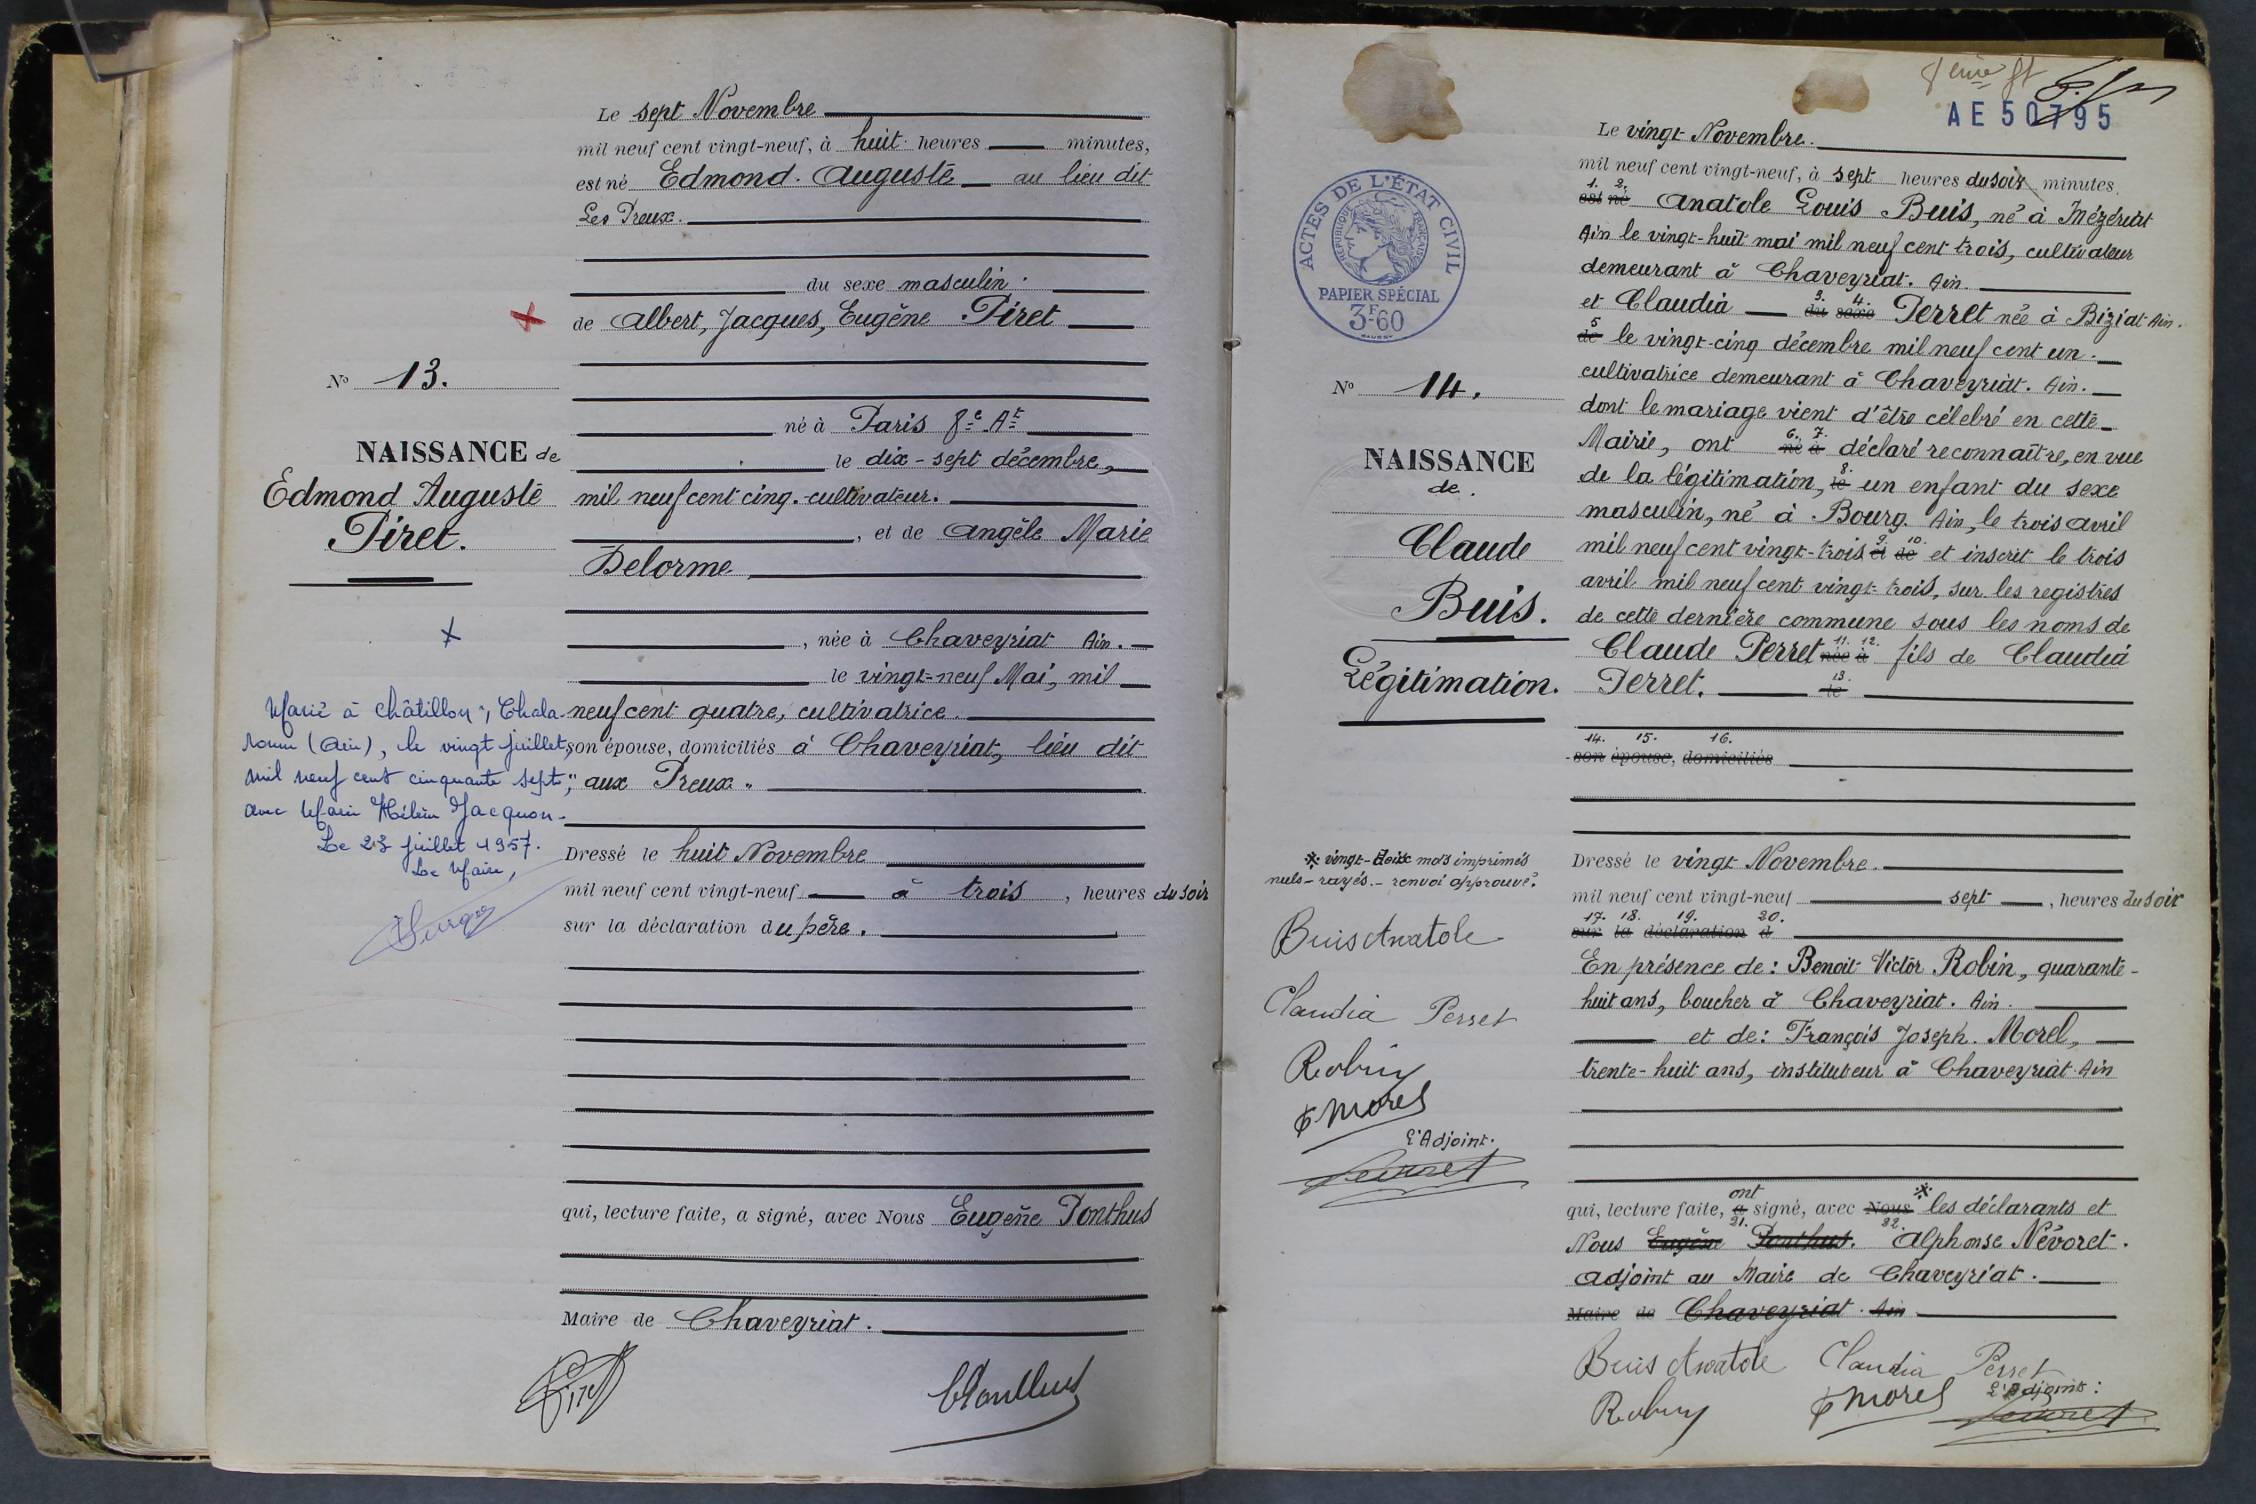 Le sept Novembre
mil neuf cent vingt-neuf, à huit heures minutes,
est né Edmond Auguste au lieu dit
Les Preux.
du sexe masculin
de Albert, Jacques, Eugène Piret
N° 13.
né à Paris 8e Art
NAISSANCE de
le dix-sept décembre,
Edmond Auguste
mil neuf cent cinq. cultivateur.
Piret.
, et de Angèle Marie
Delorme
, née à Chaveyriat Ain.
le vingt-neuf Mai, mil
neuf cent quatre, cultivatrice.
son épouse, domiciliés à Chaveyriat, lieu dit
"aux Preux."
Marié à Châtillon s/ Chala-
ronne (Ain), le vingt juillet
mil neuf cent cinquante sept,
avec Marie Hélène Jacquon-
Le 23 juillet 1957.
Le Maire,
Dressé le huit Novembre
mil neuf cent vingt-neuf à trois , heures du soir
sur la déclaration du père.
qui, lecture faite, a signé, avec Nous Eugène Ponthus
Maire de Chaveyriat.
Piret
Ponthus
AE 50795
Le vingt Novembre.
mil neuf cent vingt-neuf, à sept heures du soir minutes.
1. 2.
est né Anatole Louis Buis, né à Mézériat
Ain le vingt-huit mai mil neuf cent trois, cultivateur
demeurant à Chaveyriat. Ain.
3. 4.
et Claudia du sexe Perret née à Biziat Ain.
5
de le vingt-cinq décembre mil neuf cent un.
cultivatrice demeurant à Chaveyriat. Ain.
dont le mariage vient d'être célebré en cette
6. 7.
Mairie, ont né à déclaré reconnaître, en vue
8.
de la légitimation, le un enfant du sexe
masculin, né à Bourg. Ain, le trois avril
9. 10.
mil neuf cent vingt-trois et de et inscrit le trois
avril mil neuf cent vingt-trois, sur les registres
de cette dernière commune sous les noms de
11. 12.
Claude Perret née à fils de Claudia
13.
Perret. le
14. 15. 16.
son épouse, domiciliés
ACTES DE L'ÉTAT CIVIL
RÉPUBLIQUE FRANÇAISE
PAPIER SPÉCIAL
3F60
N° 14.
NAISSANCE
de.
Claude
Buis.
Légitimation.
※ vingt-deux mots imprimés
nuls-rayés.- renvoi approuvé.
Buis Anatole
Claudia Perret
Robin
F Morel
L'Adjoint.
Nevoret
Dressé le vingt Novembre.
mil neuf cent vingt-neuf sept , heures du soir
17. 18. 19. 20.
sur la déclaration d
En présence de: Benoit Victor Robin, quarante-
huit ans, boucher à Chaveyriat. Ain.
et de: François Joseph. Morel,
trente-huit ans, instituteur à Chaveyriat. Ain
ont ※
qui, lecture faite, a signé, avec Nous les déclarants et
21. 22.
Nous Eugène Ponthus. Alphonse Névoret.
adjoint au Maire de Chaveyriat.
Maire de Chaveyriat. Ain
Buis Anatole Claudia Perret
L'Adjoint:
Robin F Morel Nevoret